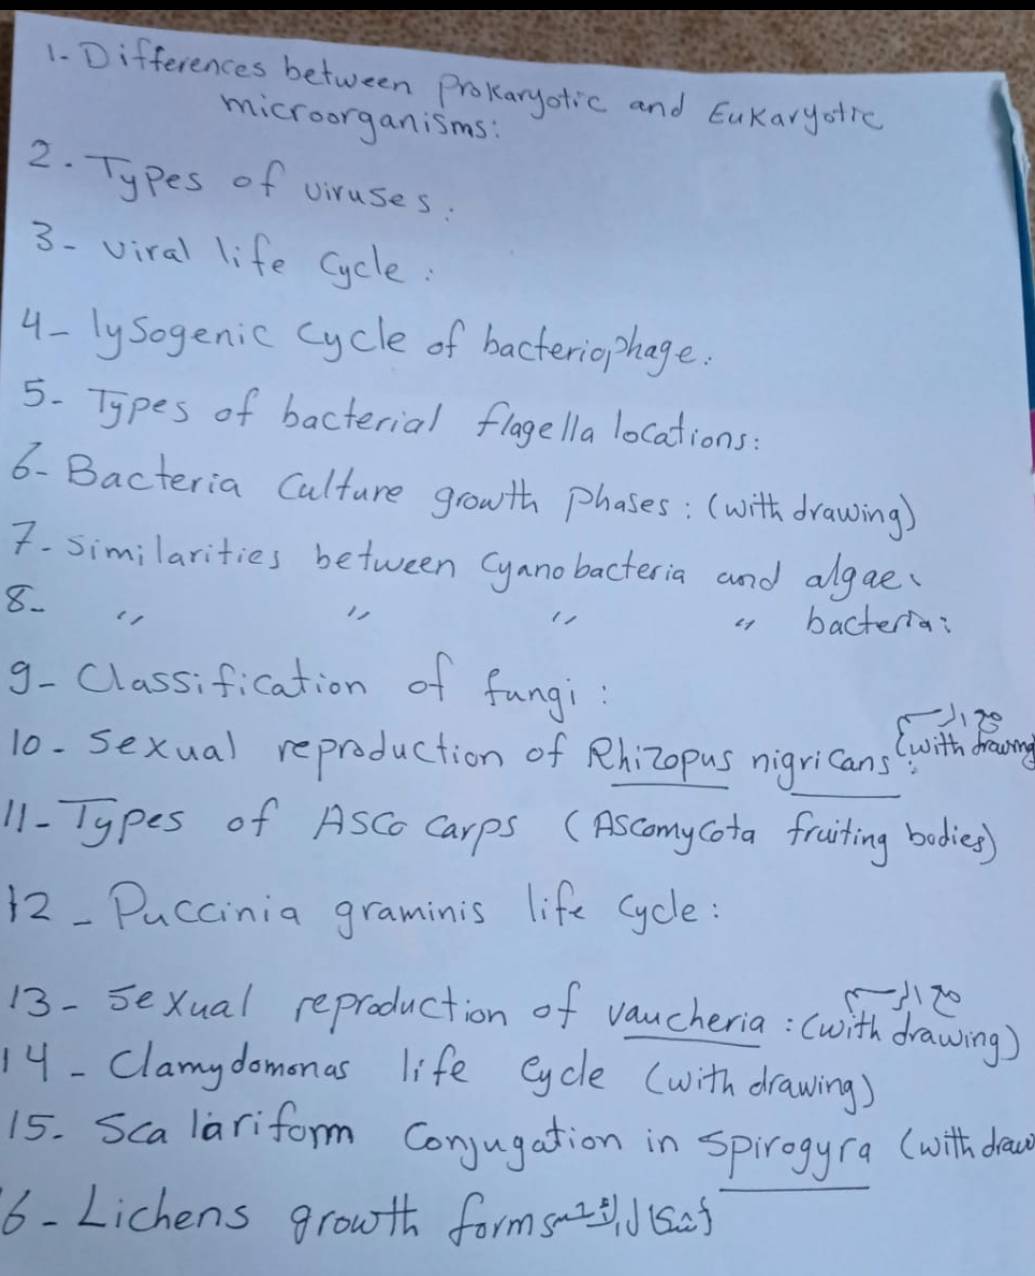 1- Differences between Prokaryotic and Eukaryotic
microorganisms:
2. Types of viruses:
3- viral life cycle:
4- lysogenic cycle of bacteriophage.
5- Types of bacterial flagella locations:
6- Bacteria Culture growth phases: (with drawing)
7- similarities between cyanobacteria and algae.
8- " " " " bacteria:
9- Classification of fungi:
مع الرسم
10- sexual reproduction of Rhizopus nigricans: (with drawing
11- Types of Asco carps (Ascomycota fruiting bodies)
12- Puccinia graminis life cycle:
مع الرسم
13- sexual reproduction of vaucheria: (with drawing)
14- Clamydomonas life cycle (with drawing)
15. Scalariform Conjugation in spirogyra (with draw
6- Lichens growth forms أشكال